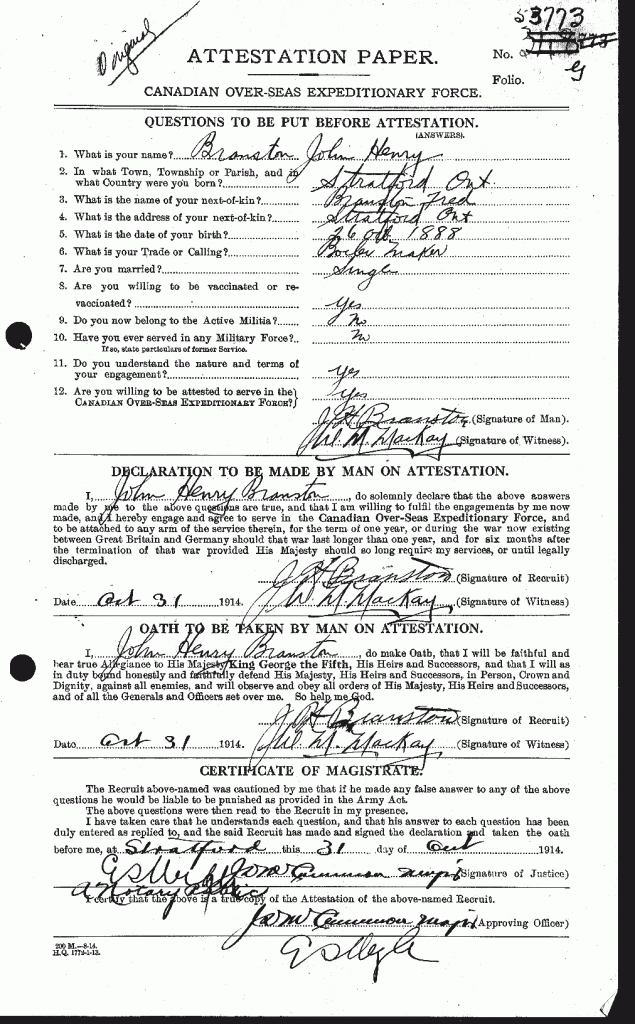 Original
53773
ATTESTATION PAPER.
No.
Folio.
CANADIAN OVER-SEAS EXPEDITIONARY FORCE.
QUESTIONS TO BE PUT BEFORE ATTESTATION.
(ANSWERS).
1. What is your name? Branston John Henry
2. In what Town, Township or Parish, and in
what Country were you born? Stratford Ont.
3. What is the name of your next-of-kin? Branston Fred
4. What is the address of your next-of-kin? Stratford Ont
5. What is the date of your birth? 26 Oct. 1888
6. What is your Trade or Calling? Boiler Maker
7. Are you married? Single
8. Are you willing to be vaccinated or re-
vaccinated? Yes
9. Do you now belong to the Active Militia? No
10. Have you ever served in any Military Force? No
If so, state particulars of former Service.
11. Do you understand the nature and terms of
your engagement? Yes
12. Are you willing to be attested to serve in the
CANADIAN OVER-SEAS EXPEDITIONARY FORCE? Yes
J H Branston (Signature of Man).
M. MacKay (Signature of Witness).
DECLARATION TO BE MADE BY MAN ON ATTESTATION.
I, John Henry Branston, do solemnly declare that the above answers
made by me to the above questions are true, and that I am willing to fulfil the engagements by me now
made, and I hereby engage and agree to serve in the Canadian Over-Seas Expeditionary Force, and
to be attached to any arm of the service therein, for the term of one year, or during the war now existing
between Great Britain and Germany should that war last longer than one year, and for six months after
the termination of that war provided His Majesty should so long require my services, or until legally
discharged.
J H Branston (Signature of Recruit)
Date Oct 31 1914. M. MacKay (Signature of Witness)
OATH TO BE TAKEN BY MAN ON ATTESTATION.
I, John Henry Branston, do make Oath, that I will be faithful and
bear true Allegiance to His Majesty King George the Fifth, His Heirs and Successors, and that I will as
in duty bound honestly and faithfully defend His Majesty, His Heirs and Successors, in Person, Crown and
Dignity, against all enemies, and will observe and obey all orders of His Majesty, His Heirs and Successors,
and of all the Generals and Officers set over me. So help me God.
J H Branston (Signature of Recruit)
Date Oct 31 1914. M. MacKay (Signature of Witness)
CERTIFICATE OF MAGISTRATE.
The Recruit above-named was cautioned by me that if he made any false answer to any of the above
questions he would be liable to be punished as provided in the Army Act.
The above questions were then read to the Recruit in my presence.
I have taken care that he understands each question, and that his answer to each question has
been duly entered as replied to, and the said Recruit has made and signed the declaration and taken the oath
before me, at Stratford this 31 day of Oct 1914.
(Signature of Justice)
A Notary Public
I certify that the above is a true copy of the Attestation of the above-named Recruit.
(Approving Officer)
200 M.—8-14.
H.Q. 1772-1-13.